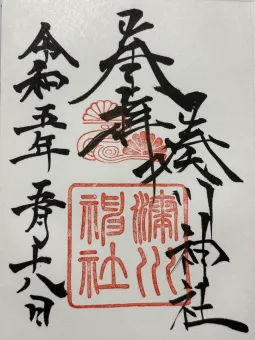 奉拝
湊川神社
令和五年 五月十八日
湊川神社